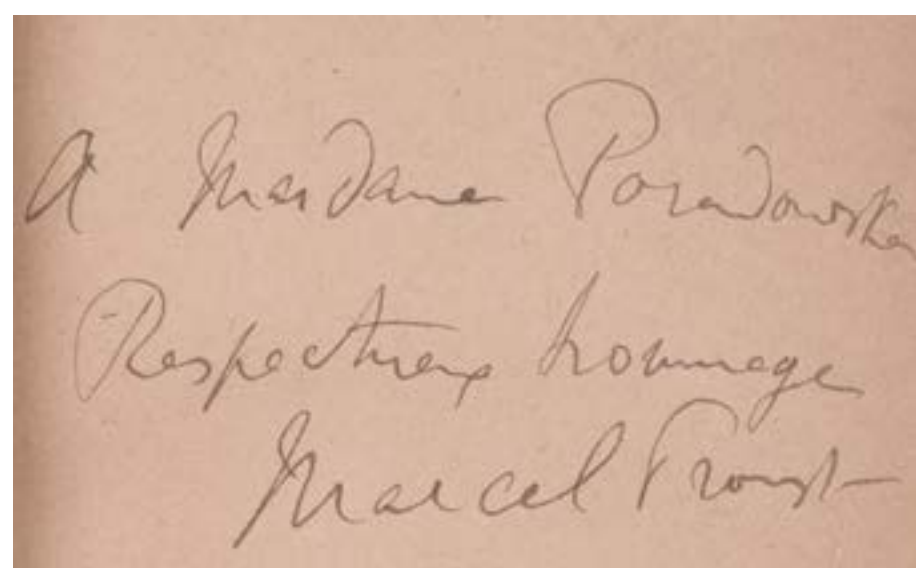 A Madame Poradowska
Respectueux hommage
Marcel Proust